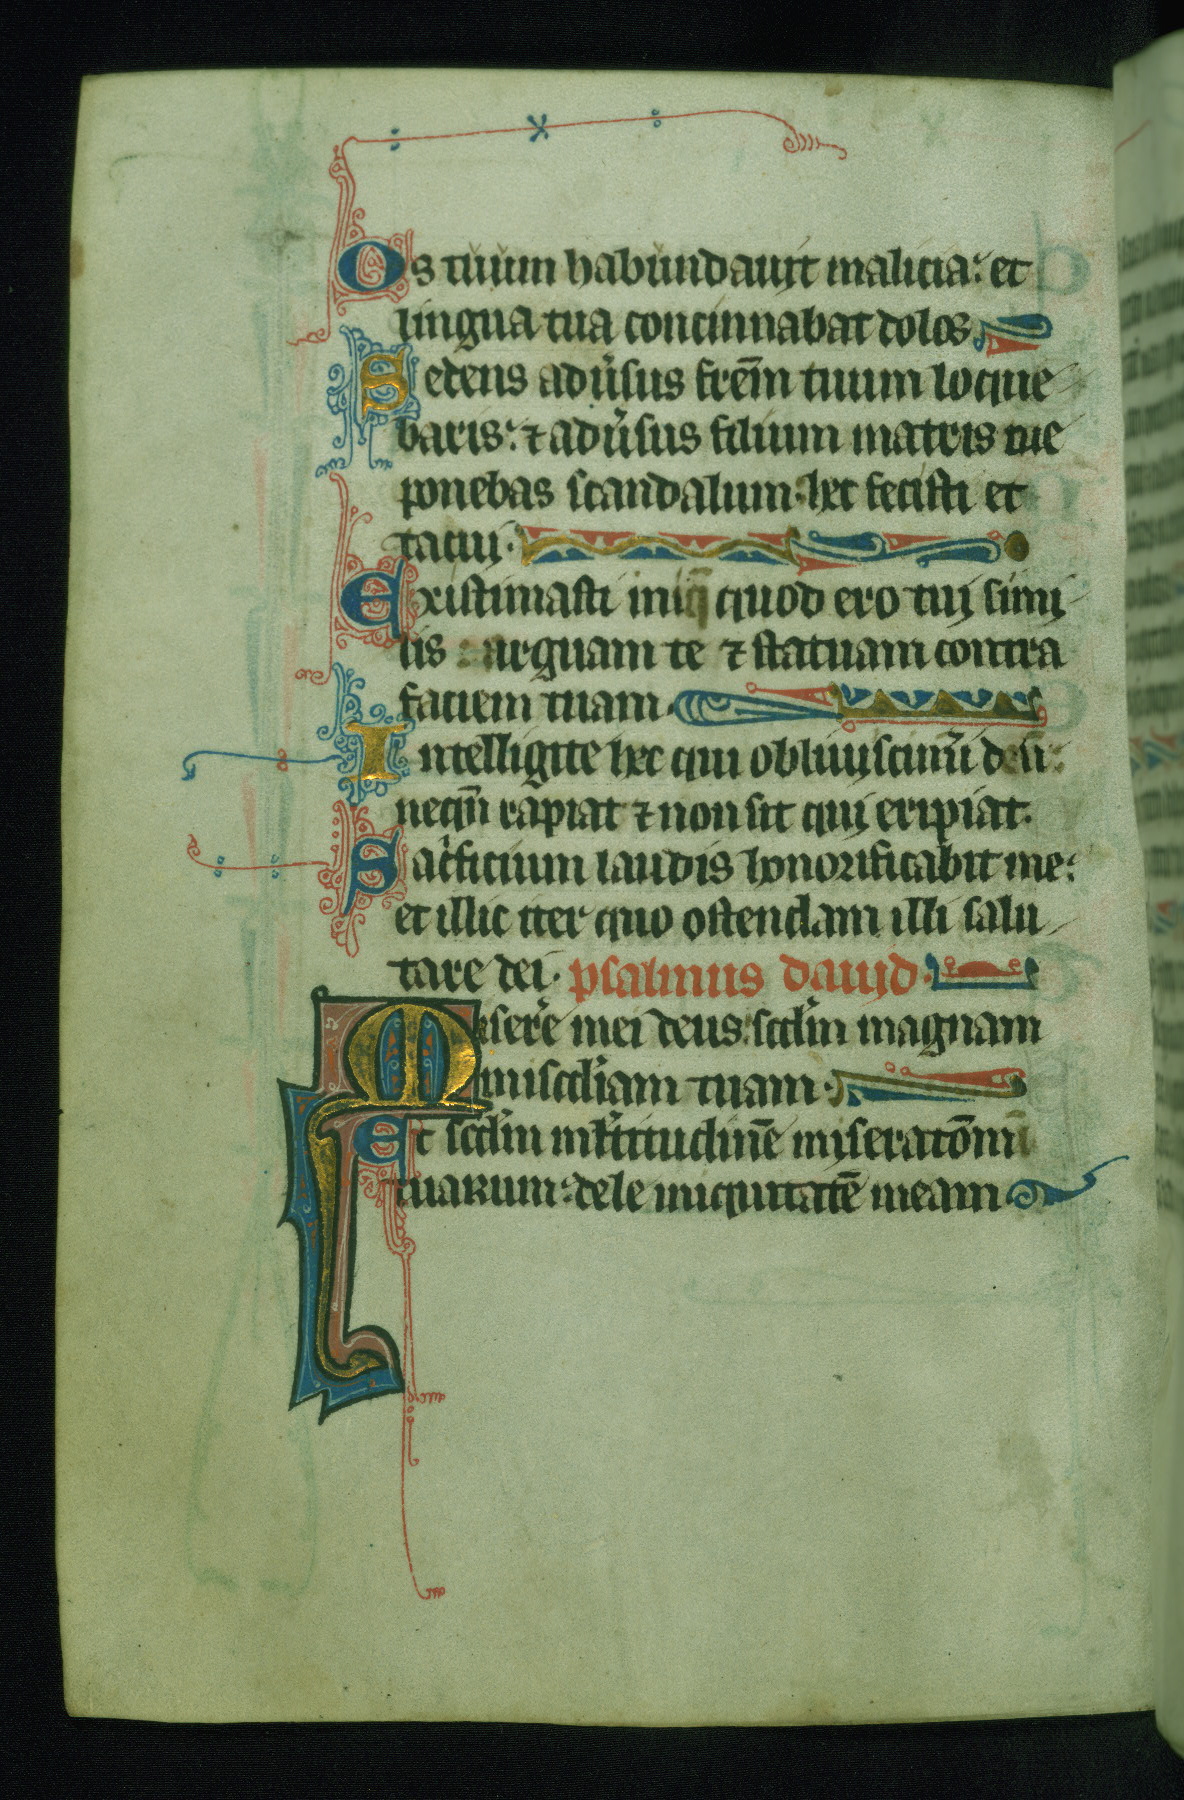 Os tuum habundauit malicia: et
lingua tua concinnabat dolos
Sedens adusus frēm tuum loque
baris: ⁊ adusus filium matris tue
ponebas scandalum. hec fecisti et
tacui.
Existimasti iniq̄ quod ero tui simi
lis: arguam te ⁊ statuam contra
faciem tuam.
Intelligite hec qui obliuiscimī deū:
neqn̄ rapiat ⁊ non sit qui eripiat.
Sacficium laudis honorificabit me:
et illic iter quo ostendam illi salu
tare dei. psalmus dauid.
Misere mei deus: scdm magnam
miscdiam tuam.
Et scdm mltitudinē miseratōm
tuarum: dele iniquitatē meam